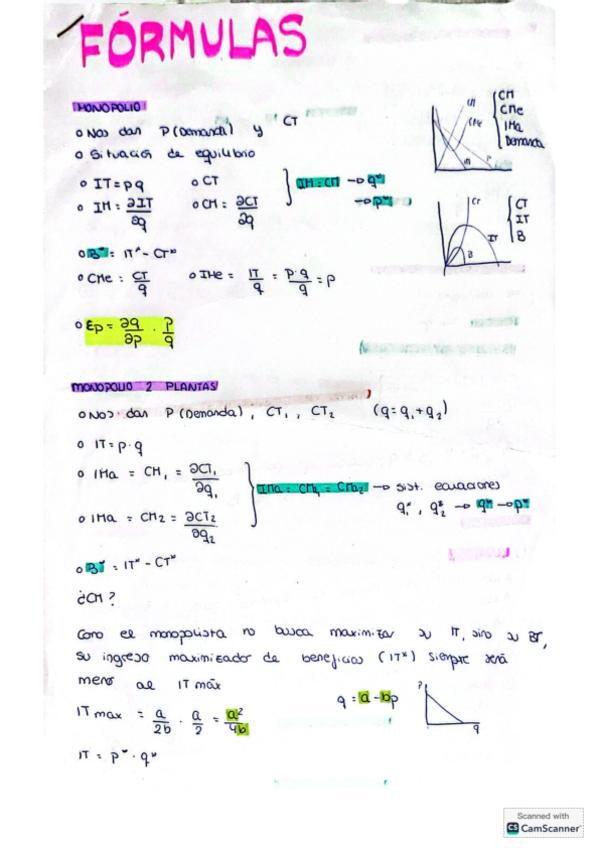 FÓRMULAS
MONOPOLIO
o Nos dan P (Demanda) y CT
o Situación de equilibrio
o IT = p q o CT
o IM = ∂IT/∂q o CM = ∂CT/∂q } IM = CM → q*
→ p*
o B* = IT* - CT*
o CMe = CT/q o IMe = IT/q = p·q/q = p
o Ep = ∂q/∂p · p/q
CM
CMe
IMa
Demanda
CM
CMe
IM
P
CT
IT
B
CT
IT
B
MONOPOLIO 2 PLANTAS
o Nos dan P (Demanda), CT₁, CT₂ (q = q₁ + q₂)
o IT = p·q
o IMa = CM₁ = ∂CT₁/∂q₁
o IMa = CM₂ = ∂CT₂/∂q₂
} IMa = CM₁ = CMa₂ → sist. ecuaciones
q₁*, q₂* → q* → p*
o B* = IT* - CT*
¿CM?
Como el monopolista no busca maximizar su IT, sino su BT,
su ingreso maximizador de beneficios (IT*) siempre será
menor al IT máx
IT max = a/2b · a/2 = a²/4b
q = a - bp
P
q
IT = p* · q*
Scanned with
CS CamScanner